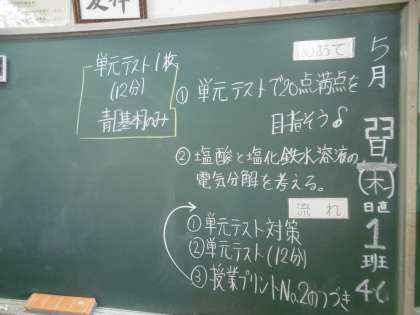 5月
(木)
日直
1
班
46
めあて
① 単元テストで20点満点を
目指そう
② 塩酸と塩化鉄水溶液の
電気分解を考える。
流れ
①単元テスト対策
②単元テスト(12分)
③授業プリントNo.2のつづき
単元テスト1枚
(12分)
青基本のみ